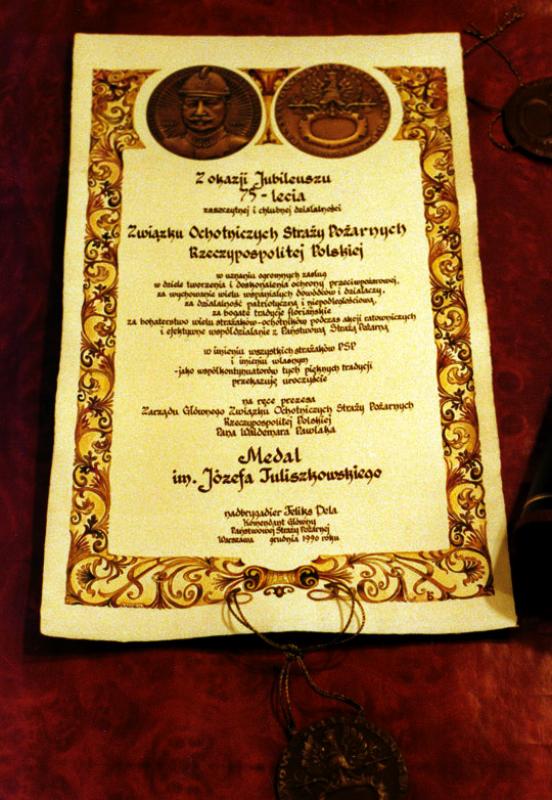 Z okazji Jubileuszu
75 - lecia
zaszczytnej i chlubnej działalności
Związku Ochotniczych Straży Pożarnych
Rzeczypospolitej Polskiej
w uznaniu ogromnych zasług
w dziele tworzenia i doskonalenia ochrony przeciwpożarowej,
za wychowanie wielu wspaniałych dowódców i działaczy,
za działalność patriotyczną i niepodległościową,
za bogate tradycje floriańskie
za bohaterstwo wielu strażaków-ochotników podczas akcji ratowniczych
i efektywne współdziałanie z Państwową Strażą Pożarną
w imieniu wszystkich strażaków PSP
i imieniu własnym
-jako współkontynuatorów tych pięknych tradycji
przekazuję uroczyście
na ręce prezesa
Zarządu Głównego Związku Ochotniczych Straży Pożarnych
Rzeczypospolitej Polskiej
Pana Waldemara Pawlaka
Medal
im. Józefa Tuliszkowskiego
nadbrygadier Feliks Dela
Komendant Główny
Państwowej Straży Pożarnej
Warszawa grudnia 1996 roku